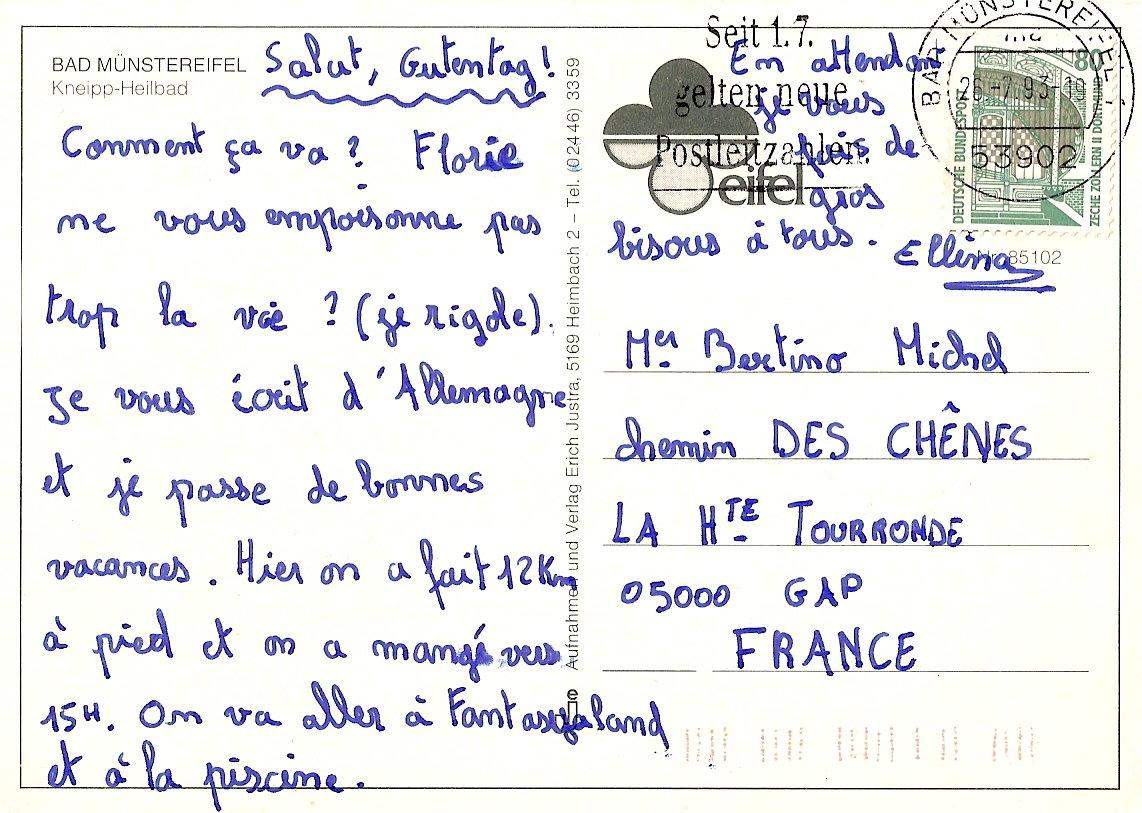 BAD MÜNSTEREIFEL
Kneipp-Heilbad
Salut, Gutentag!
Comment ça va ? Florie
ne vous empoisonne pas
trop la vie ? (je rigole).
Je vous écrit d'Allemagne
et je passe de bonnes
vacances. Hier on a fait 12Km
à pied et on a mangé vers
15H. On va aller à Fantasyaland
et à la piscine.
En attendant
je vous
fais de
gros
bisous à tous.
Ellina
Aufnahme und Verlag Erich Justra, 5169 Heimbach 2 – Tel. (02446) 3359
Seit 1.7.
gelten neue
Postleitzahlen.
eifel
BAD MÜNSTEREIFEL 1
26.-7.93-19
53902
80
DEUTSCHE BUNDESPOST
ZECHE ZOLLERN II DORTMUND
Nr. 85102
Mer Bertino Michel
chemin DES CHÊNES
LA HTE TOURRONDE
05000 GAP
FRANCE